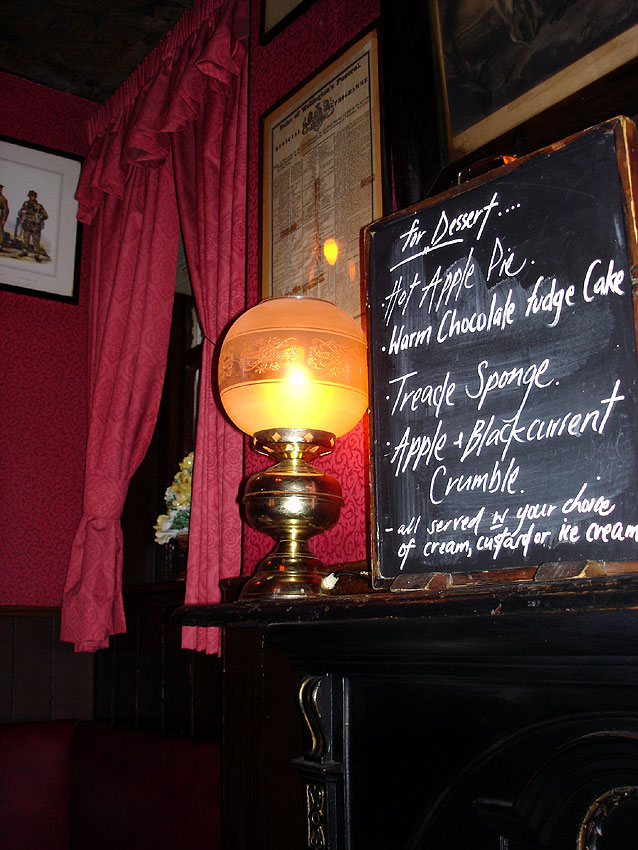 Duke of Wellington's Funeral.
OFFICIAL PROGRAMME
for Dessert....
Hot Apple Pie.
·Warm Chocolate fudge Cake
·Treacle Sponge.
·Apple + Blackcurrent
Crumble.
- all served w your choice
of cream, custard or ice cream